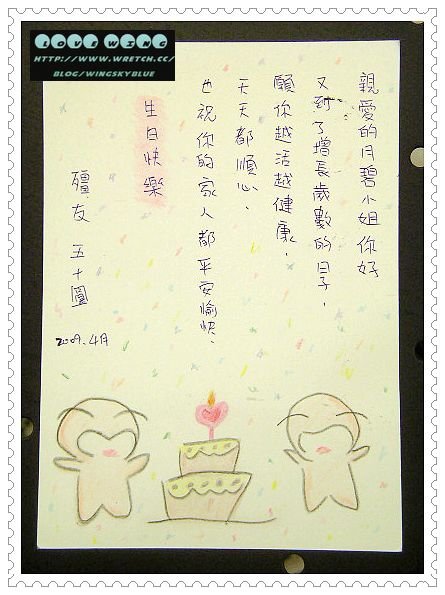 LOVE WING
HTTP://WWW.WRETCH.CC/
BLOG/WINGSKYBLUE
親愛的月碧小姐你好
又到了增長歲數的日子，
願你越活越健康，
天天都順心，
也祝你的家人都平安愉快，
生日快樂
殭友 五十圓
2009.4月